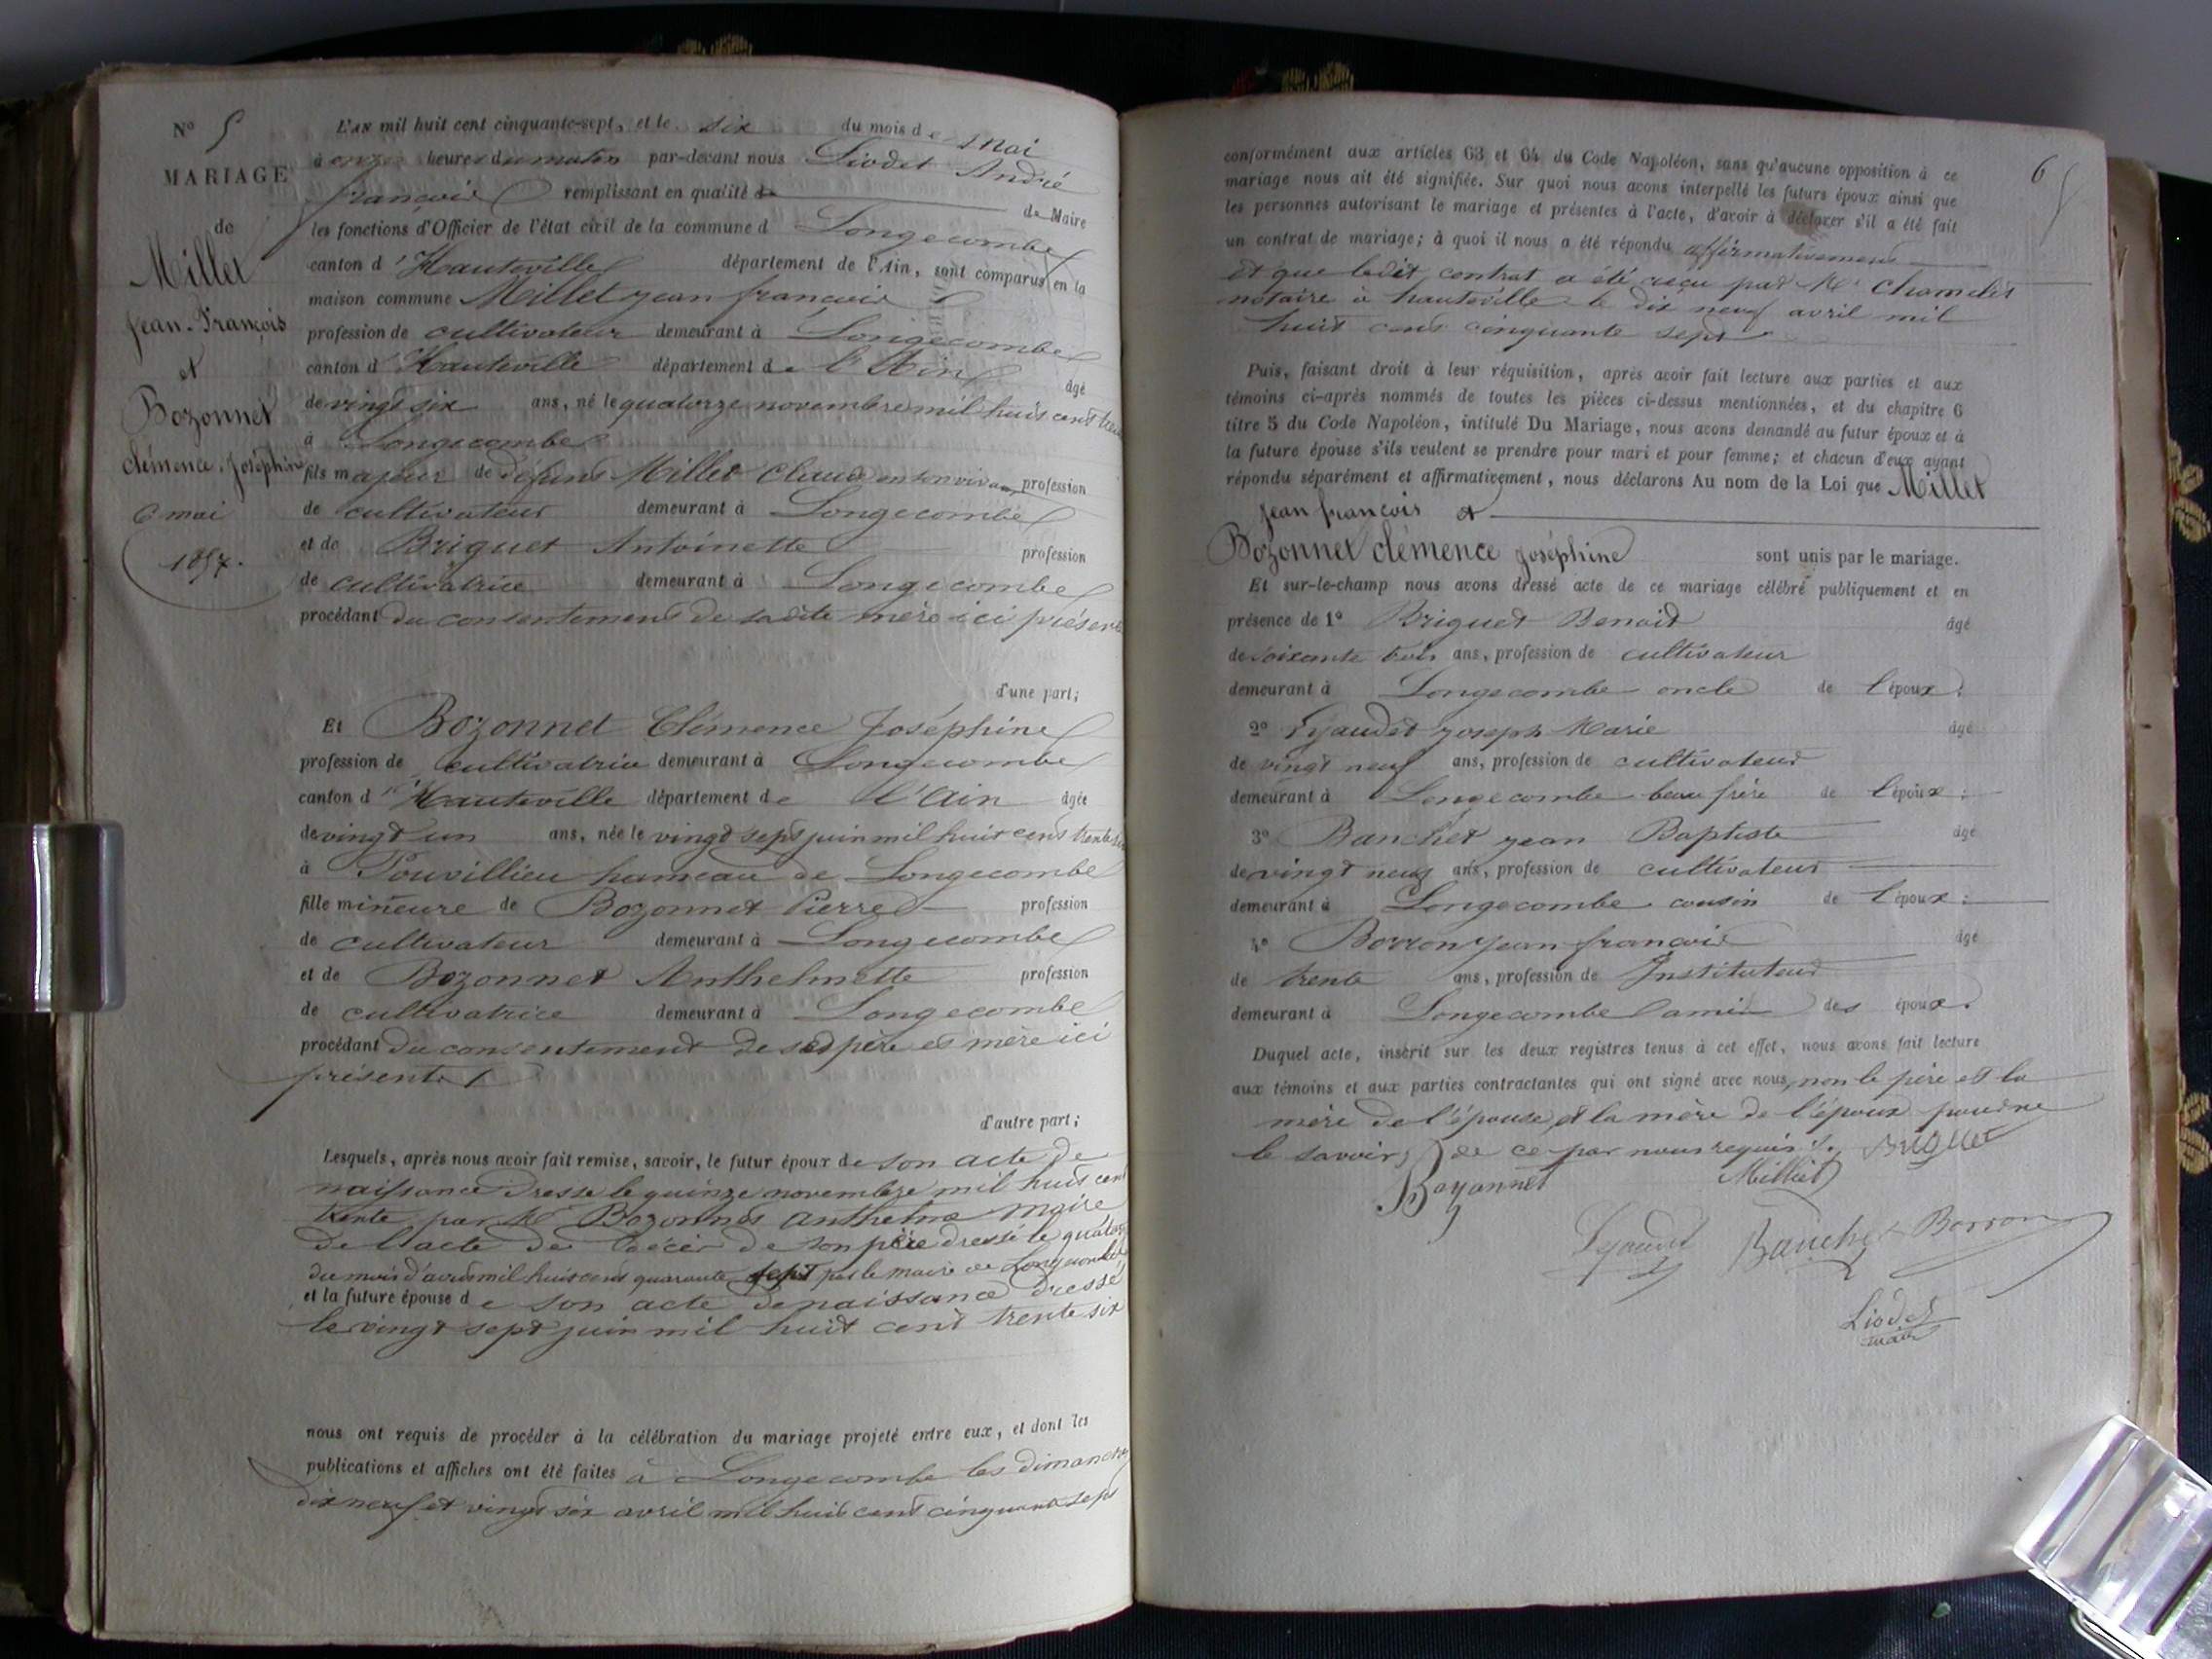 N° 5
MARIAGE
de
Millet
Jean-François
et
Bozonnet
clémence Joséphine
6 mai
1857.
L'AN mil huit cent cinquante-sept, et le six du mois de Mai
à onze heures du matin par-devant nous Liodet André
françois remplissant en qualité de Maire
les fonctions d'Officier de l'état civil de la commune d Longecombe
canton d'Hauteville département de l'Ain, sont comparus en la
maison commune Millet jean françois
profession de cultivateur demeurant à Longecombe
canton d'Hauteville département de l'Ain âgé
de vingt six ans, né le quatorze novembre mil huit cent trente
à Longecombe
fils majeur de defunt Millet Claude en son vivant profession
de cultivateur demeurant à Longecombe
et de Briguet Antoinette profession
de cultivatrice demeurant à Longecombe
procédant du consentement de sadite mère ici présente
d'une part;
Et Bozonnet Clémence Joséphine
profession de cultivatrice demeurant à Longecombe
canton d'Hauteville département de l'Ain âgée
de vingt un ans, née le vingt sept juin mil huit cent trente six
à Pouvillieu hameau de Longecombe
fille mineure de Bozonnet Pierre profession
de cultivateur demeurant à Longecombe
et de Bozonnet Anthelmette profession
de cultivatrice demeurant à Longecombe
procédant du consentement de sesd père et mère ici
présents
d'autre part;
Lesquels, après nous avoir fait remise, savoir, le futur époux de son acte de
naissance dressé le quinze novembre mil huit cent
trente par Mr Bozonnet anthelme maire
de l'acte de décès de son père dressé le quatorze
du mois d'avril mil huit cent quarante sept par le maire de Longecombe
et la future épouse de son acte de naissance dressé
le vingt sept juin mil huit cent trente six
nous ont requis de procéder à la célébration du mariage projeté entre eux, et dont les
publications et affiches ont été faites à Longecombe les dimanches
dix neuf et vingt six avril mil huit cent cinquante sept
6
conformément aux articles 63 et 64 du Code Napoléon, sans qu'aucune opposition à ce
mariage nous ait été signifiée. Sur quoi nous avons interpellé les futurs époux ainsi que
les personnes autorisant le mariage et présentes à l'acte, d'avoir à déclarer s'il a été fait
un contrat de mariage; à quoi il nous a été répondu affirmativement
et que ledit contrat a été reçu par Me
notaire à hauteville le dix neuf avril mil
huit cent cinquante sept
Puis, faisant droit à leur réquisition, après avoir fait lecture aux parties et aux
témoins ci-après nommés de toutes les pièces ci-dessus mentionnées, et du chapitre 6
titre 5 du Code Napoléon, intitulé Du Mariage, nous avons demandé au futur époux et à
la future épouse s'ils veulent se prendre pour mari et pour femme; et chacun d'eux ayant
répondu séparément et affirmativement, nous déclarons Au nom de la Loi que Millet
Jean françois et
Bozonnet clémence Joséphine sont unis par le mariage.
Et sur-le-champ nous avons dressé acte de ce mariage célébré publiquement et en
présence de 1° Briguet Benoit âgé
de soixante trois ans, profession de cultivateur
demeurant à Longecombe oncle de l'époux;
2° Lyaudet joseph Marie âgé
de vingt neuf ans, profession de cultivateur
demeurant à Longecombe beau frère de l'époux;
3° Banchet jean Baptiste âgé
de vingt neuf ans, profession de cultivateur
demeurant à Longecombe cousin de l'époux;
4° Borron jean françois âgé
de trente ans, profession de Instituteur
demeurant à Longecombe l'ami des époux.
Duquel acte, inscrit sur les deux registres tenus à cet effet, nous avons fait lecture
aux témoins et aux parties contractantes qui ont signé avec nous, non le père et la
mère de l'épouse et la mère de l'époux pour ne
le savoir, de ce par nous requis. Briguet
Bozonnet Milliet
Lyaudet Banchet Borron
Liodet
maire